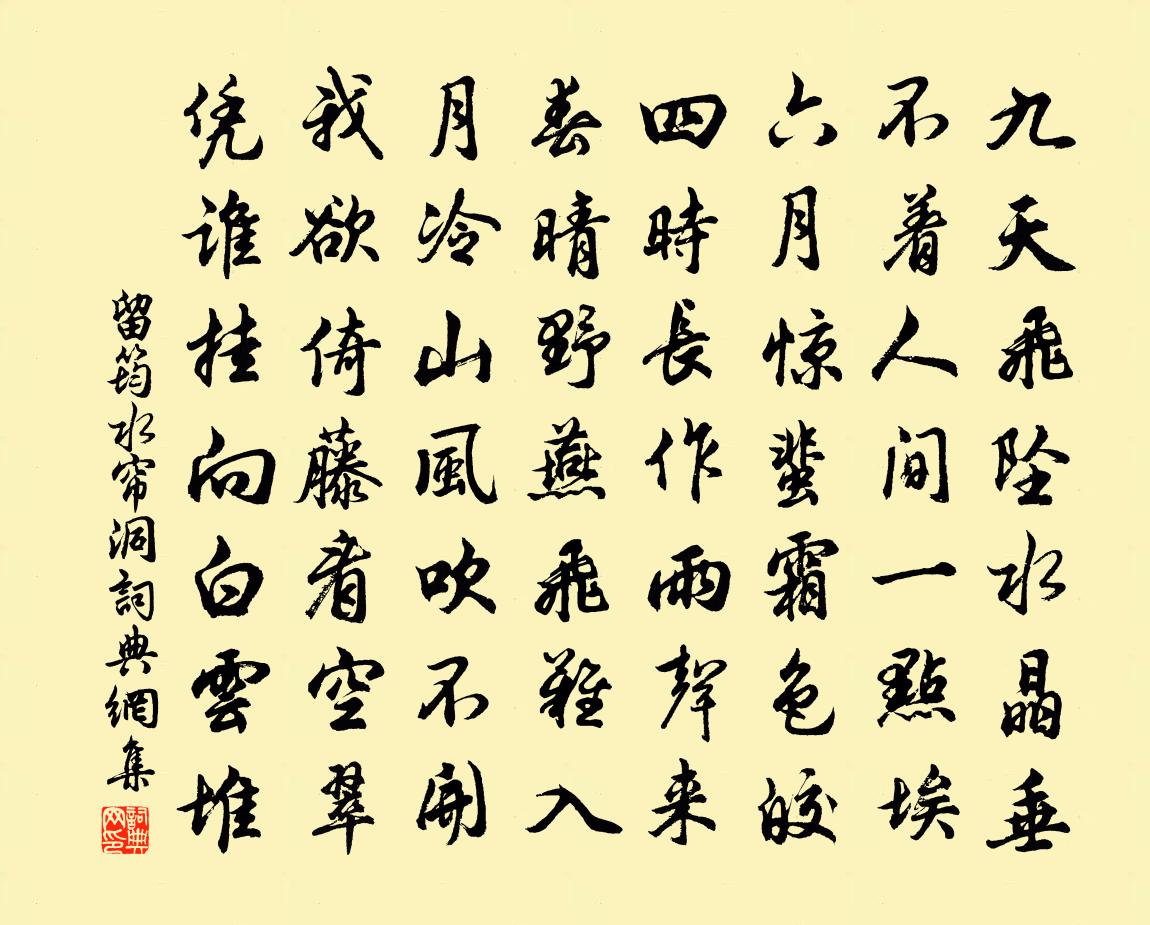 九天飛坠水晶垂
不着人間一點埃
六月惊蜚霜色皎
四時長作雨聲来
春晴野燕飛難入
月冷山風吹不開
我欲倚藤看空翠
凭誰挂向白雲堆
留筠水帘洞詞典網集
詞典网印